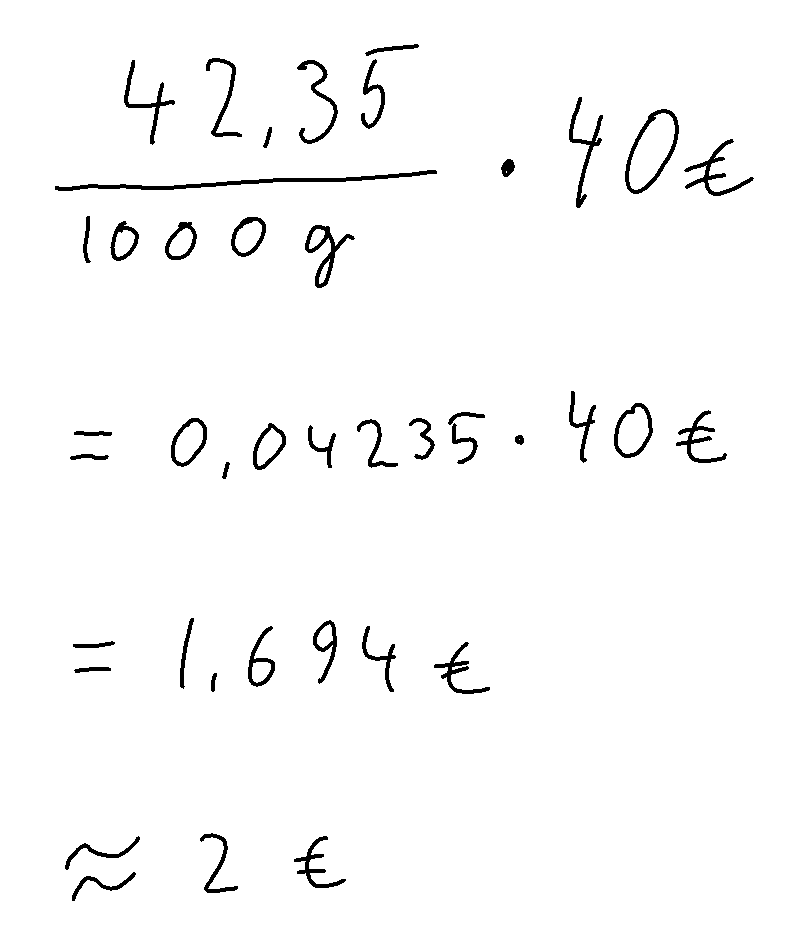 42,35
1000 g · 40 €
= 0,04235 · 40 €
= 1,694 €
≈ 2 €